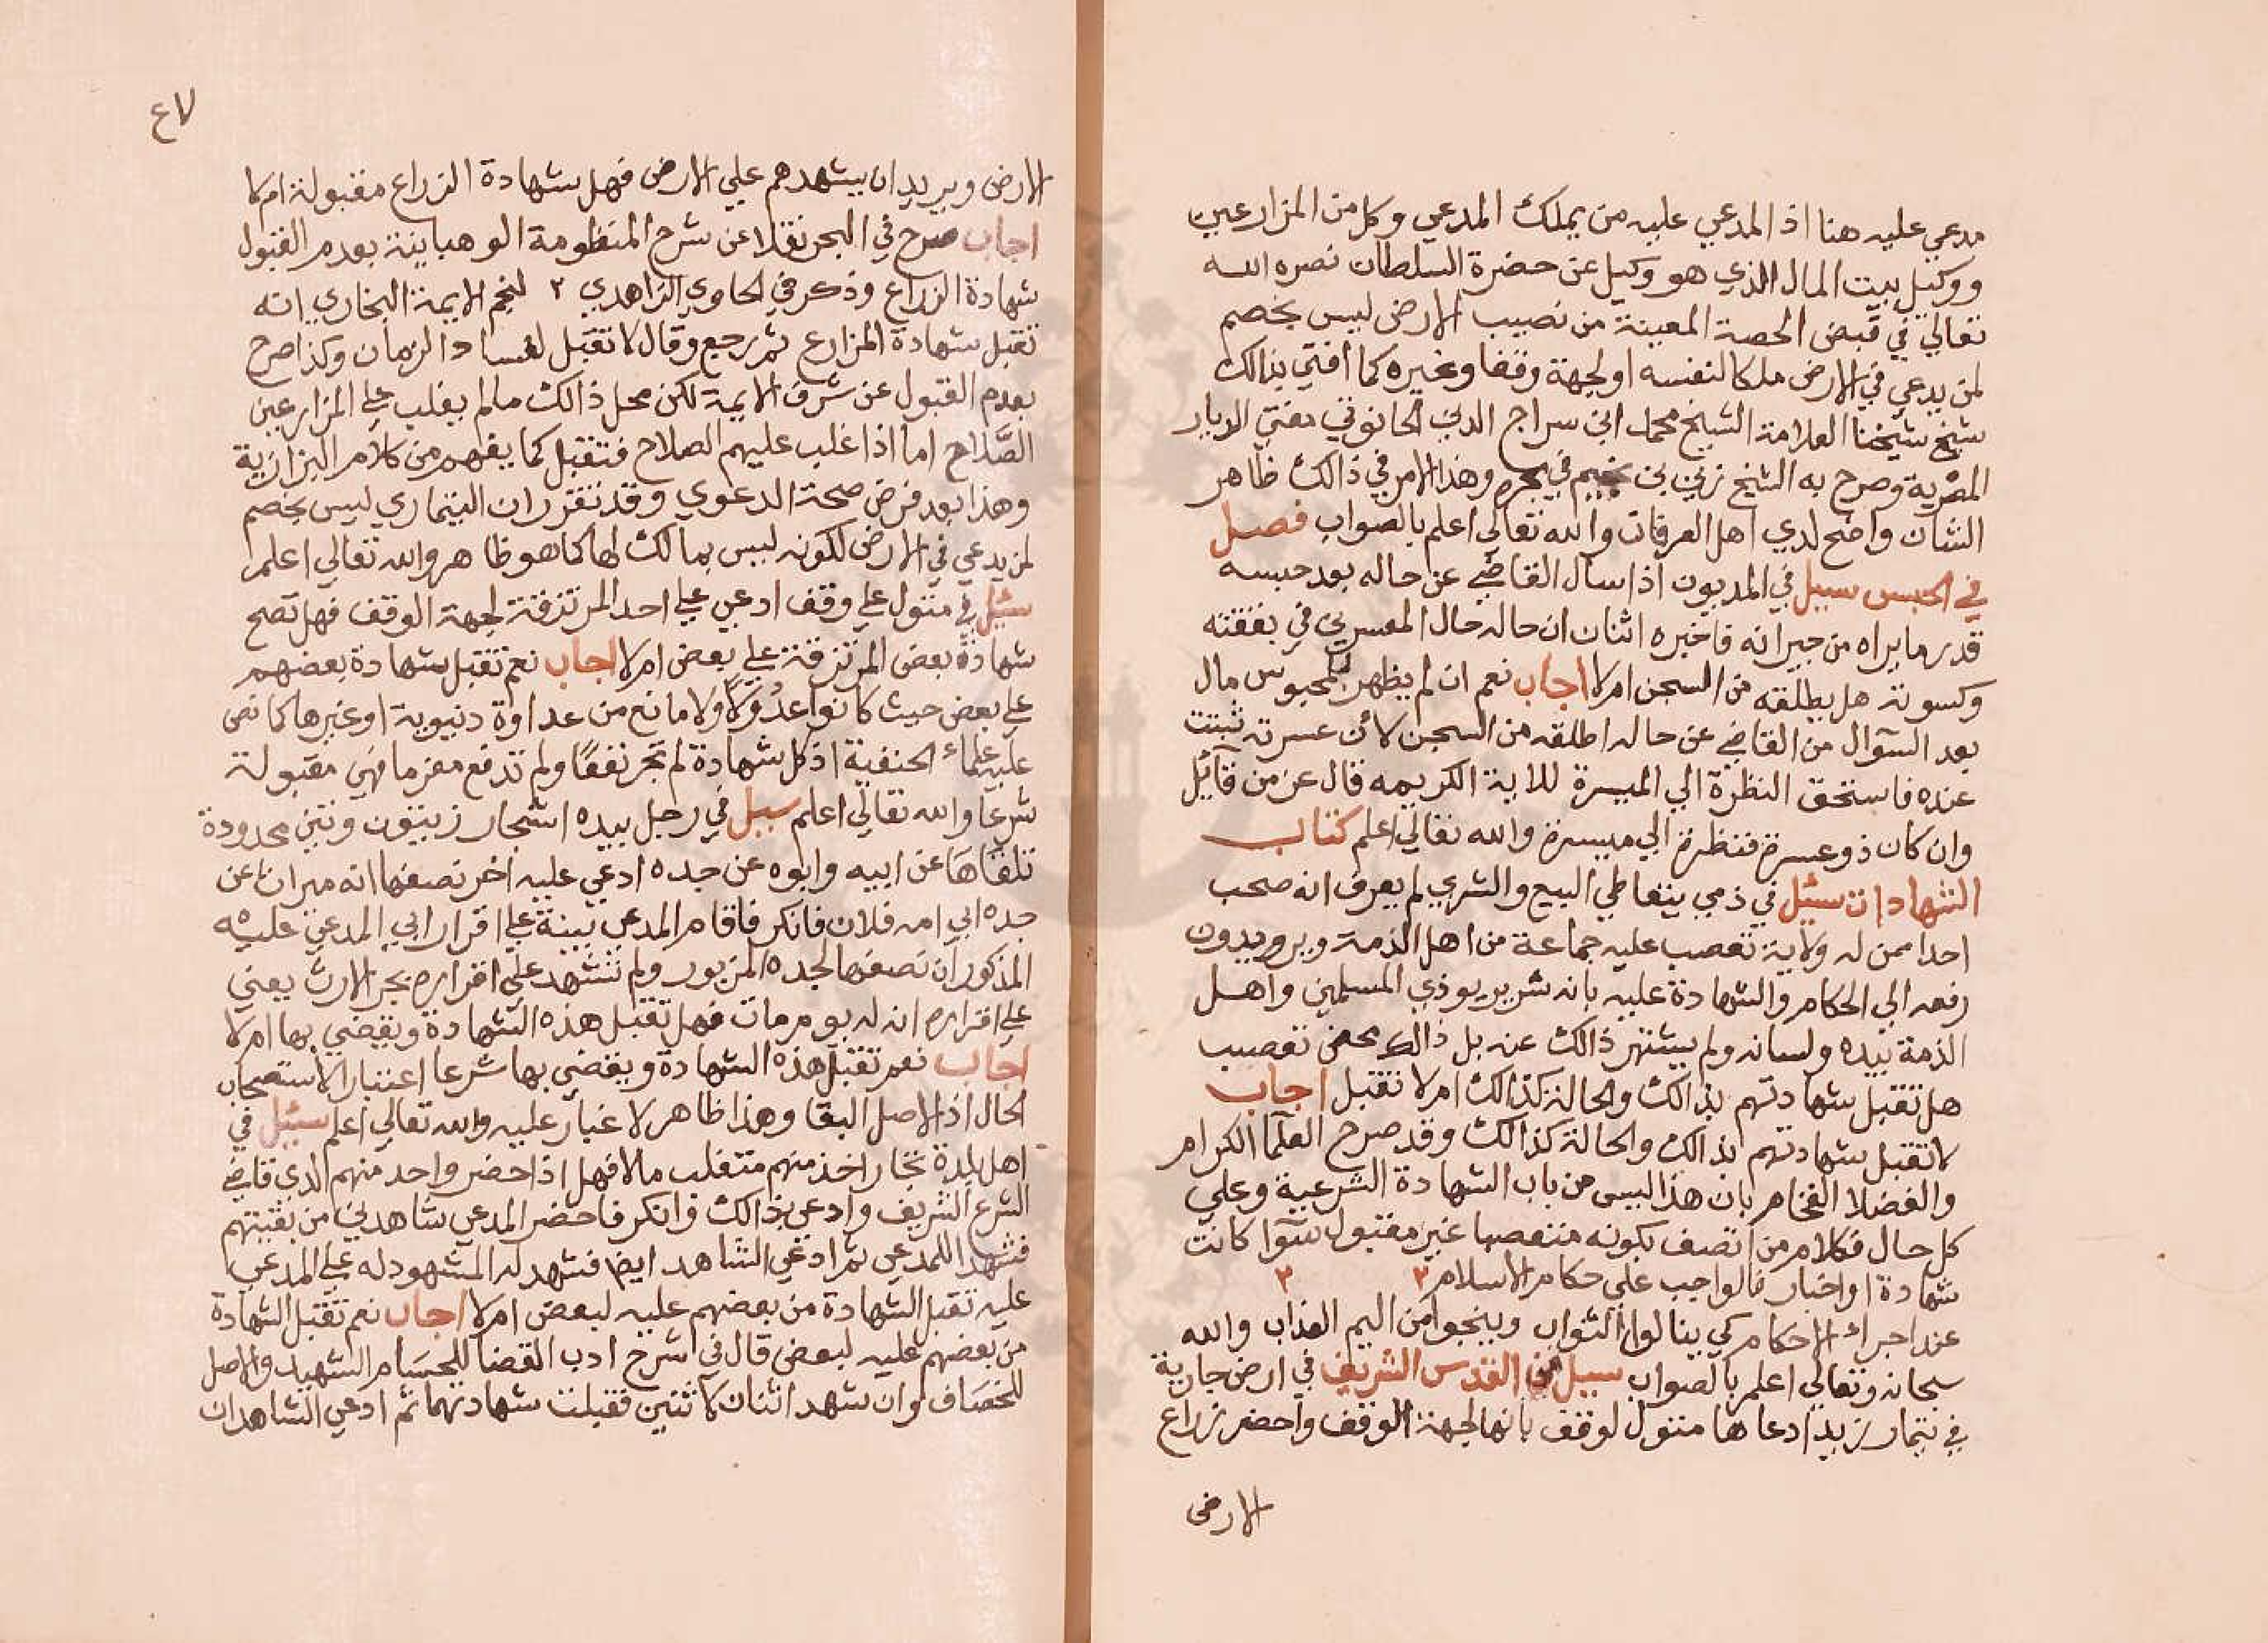 مدعي عليه هنا اذ المدعي عليه من يملك المدعي وكل من المزارعين
ووكيل بيت المال الذي هو وكيل عن حضرة السلطان نصره الله
تعالي في قبض الحصة المعينة من نصيب الارض ليس بخصم
لمن يدعي في الارض ملكا لنفسه او لجهة وقفا وغيره كما افتي بذالك
شيخ شيخنا العلامة الشيخ محمد ابن سراج الدين الحانوتي مفتي الديار
المصرية وصرح به الشيخ زين بن نجيم في بحره وهذا الامر في ذالك ظاهر
الشان واضح لدي اهل العرفان والله تعالي اعلم بالصواب فصل
في الحبس سيل في المديون اذا سال القاضي عن حاله بعد حبسه
قدر ما يراه من جيرانه فاخبره اثنان ان حاله حال المعسرين في نفقته
وكسوته هل يطلقه من السجن ام لا اجاب نعم ان لم يظهر للمحبوس مال
بعد السوال من القاضي عن حاله اطلقه من السجن لأن عسرته ثبتت
عنده فاستحق النظرة الي الميسرة للاية الكريمه قال عز من قايل
وان كان ذو عسرة فنظرة الي ميسرة والله تعالي اعلم كتاب
الشهادات سئيل في ذمي يتعاطي البيع والشري لم يعرف انه صحب
احدا ممن له ولاية تعصب عليه جماعة من اهل الذمة ويريدون
رفعه الي الحكام والشهادة عليه بانه شرير يوذي المسلمين واهل
الذمة بيده ولسانه ولم يشتهر ذالك عنه بل ذالك محض تعصب
هل تقبل شهادتهم بذالك والحالة كذالك ام لا تقبل اجاب
لا تقبل شهادتهم بذالك والحالة كذالك وقد صرح العلما الكرام
والفضلا الفخام بان هذا ليس من باب الشهادة الشرعية وعلي
كل حال فكلام من اتصف بكونه متعصبا غير مقبول سوا كانت
شهادة او اخبار فالواجب علي حكام الاسلام ٢ ٣
عند اجراء الاحكام كي ينالوا الثواب وينجوا من اليم العذاب والله
سبحانه وتعالي اعلم بالصواب سيل من القدس الشريف في ارض جارية
في تيمار زيد ادعاها متول لوقف بانها لجهة الوقف واحضر زراع
الارض
٤٧
الارض ويريد ان يشهدهم علي الارض فهل شهادة الزراع مقبولة ام لا
اجاب صرح في البحر نقلا عن شرح المنظومة الوهبانية بعدم القبول
شهادة الزراع وذكر في الحاوي الزاهدي ٢ لنجم الايمة البخاري انه
تقبل شهادة المزارع ثم رجع وقال لا تقبل لفساد الزمان وكذا صرح
بعدم القبول عن شرف الايمة لكن محل ذالك ما لم يغلب علي المزارعين
الصلاح اما اذا غلب عليهم الصلاح فتقبل كما يفهم من كلام البزازية
وهذا بعد فرض صحة الدعوي وقد تقرر ان التيماري ليس بخصم
لمن يدعي في الارض لكونه ليس بمالك لها كما هو ظاهر والله تعالي اعلم
سئيل في متول علي وقف ادعي علي احد المرتزقة لجهة الوقف فهل تصح
شهادة بعض المرتزقة علي بعض ام لا اجاب نعم تقبل شهادة بعضهم
علي بعض حيث كانوا عدولا ولا مانع من عداوة دنيوية او غيرها كما نص
عليه علماء الحنفية اذ كل شهادة لم تجر نفعا ولم تدفع مغرما فهي مقبولة
شرعا والله تعالي اعلم سيل في رجل بيده اشجار زيتون وتين محدودة
تلقاها عن ابيه وابوه عن جده ادعي عليه اخر نصفها انه ميراث عن
جده ابي امه فلان فانكر فاقام المدعي بينة علي اقرار ابي المدعي عليه
المذكور ان نصفها لجده المزبور ولم تشهد علي اقراره بجر الارث يعني
علي اقراره انه له يوم مات فهل تقبل هذه الشهادة ويقضي بها ام لا
اجاب نعم تقبل هذه الشهادة ويقضي بها شرعا اعتبارا لاستصحاب
الحال اذ الاصل البقا وهذا ظاهر لا غبار عليه والله تعالي اعلم سئيل في
اهل بلدة تجار اخذ منهم متغلب مالا فهل اذا حضر واحد منهم لدي قاضي
الشرع الشريف وادعي بذالك وانكر فاحضر المدعي شاهدين من بقيتهم
فشهدا للمدعي ثم ادعي الشاهد ايضا فشهد له المشهود له علي المدعي
عليه تقبل الشهادة من بعضهم عليه لبعض ام لا اجاب نعم تقبل الشهادة
من بعضهم عليه لبعض قال في شرح ادب القضا للحسام الشهيد والاصل
للخصاف لو ان شهد اثنان لاثنين فقبلت شهادتهما ثم ادعي الشاهدان